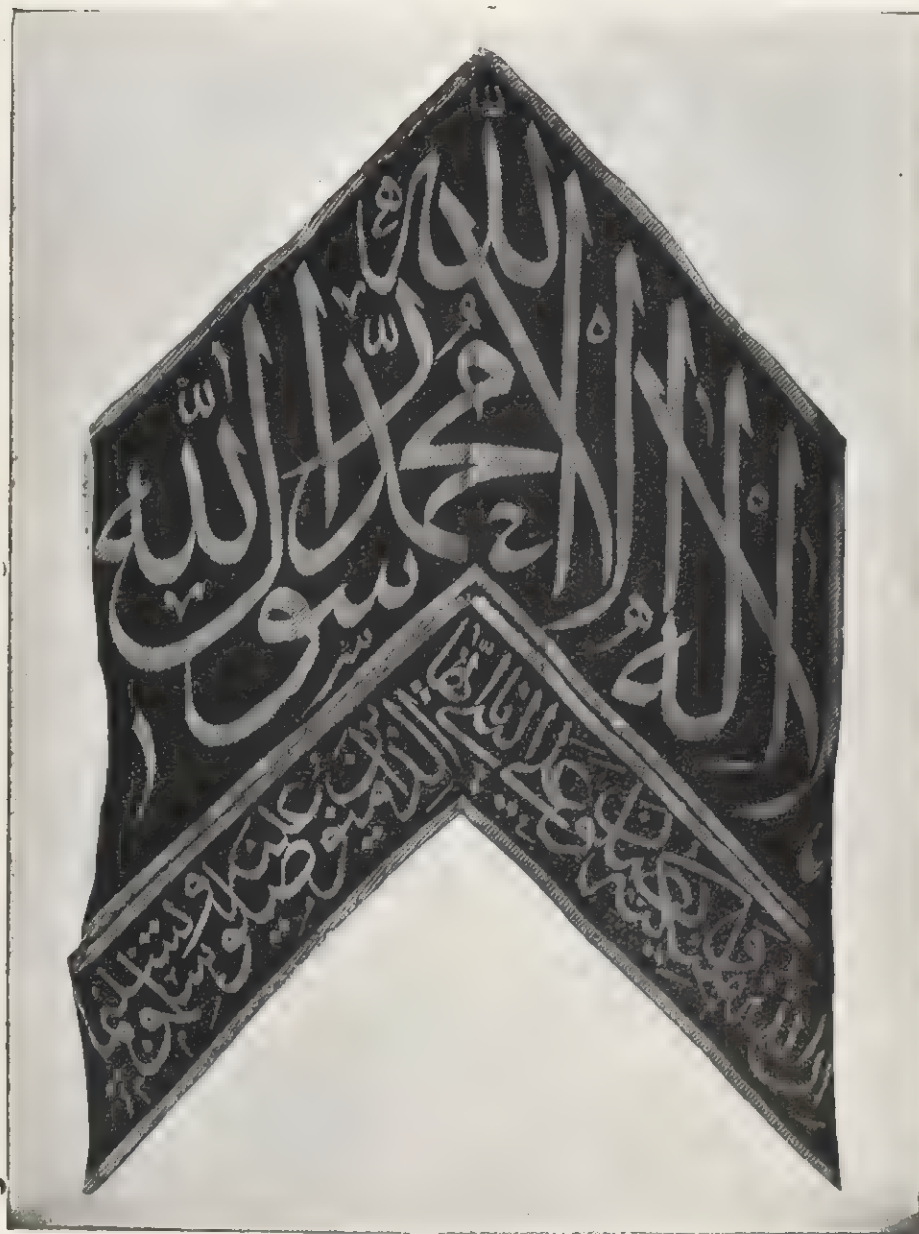 لا اله الا الله محمد رسول الله
ان الله وملائكته يصلون على النبي يا ايها الذين امنوا صلوا عليه وسلموا تسليما